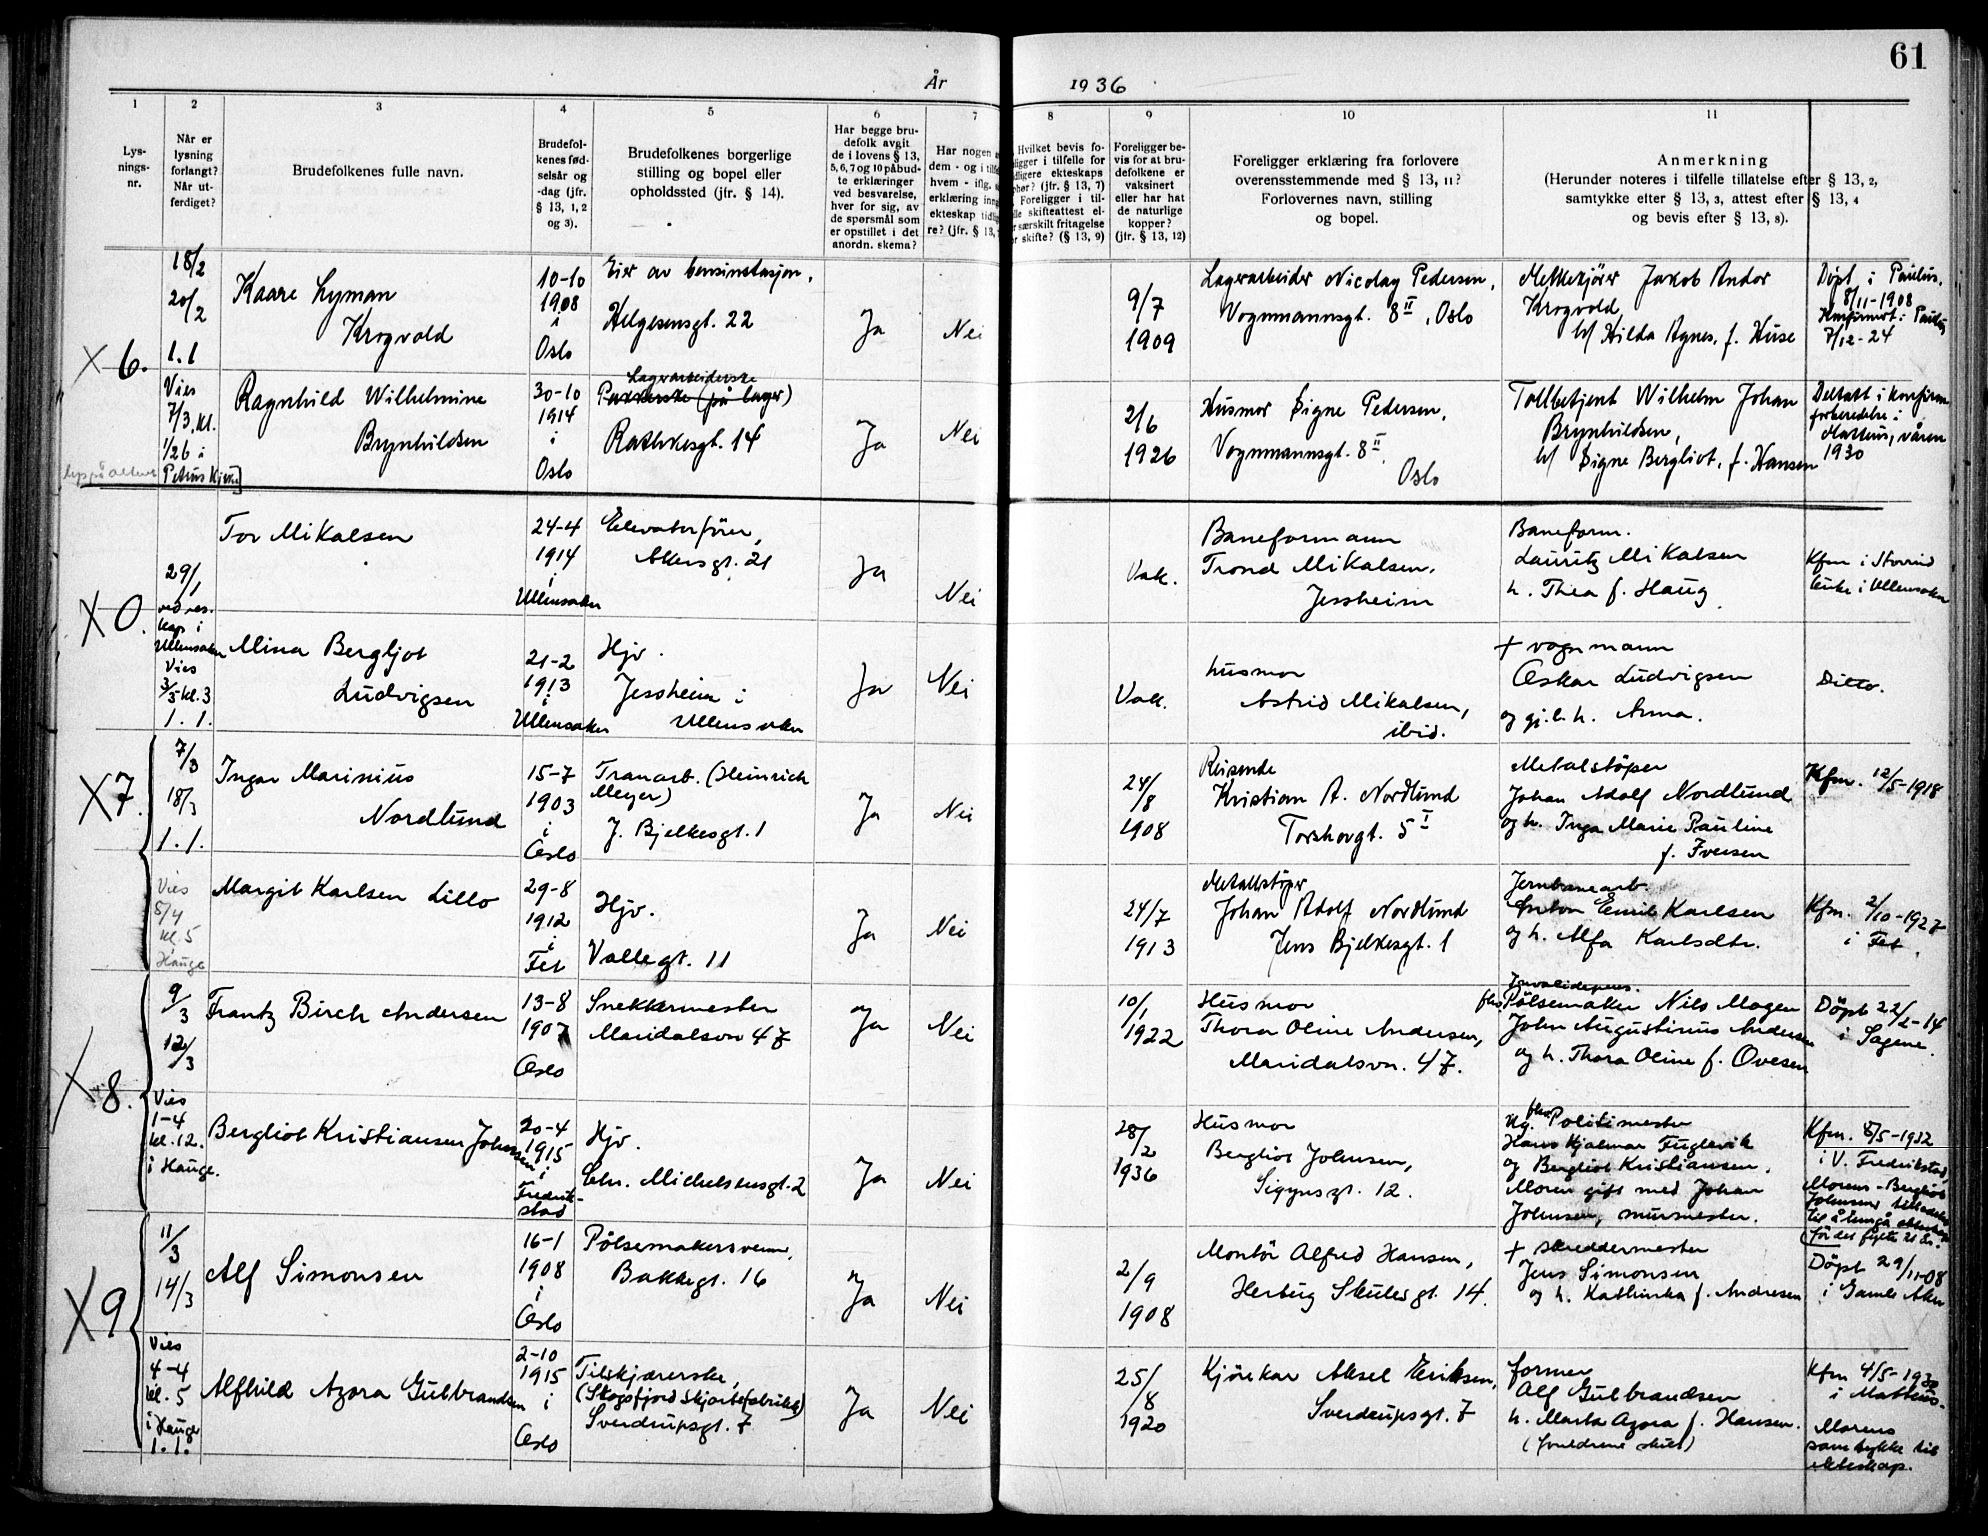 61
År 1936
1
Lys-
nings-
nr.
2
Når er
lysning
forlangt?
Når ut-
ferdiget?
3
Brudefolkenes fulle navn.
4
Brudefol-
kenes fød-
selsår og
-dag (jfr.
§ 13, 1, 2
og 3).
5
Brudefolkenes borgerlige
stilling og bopel eller
opholdssted (jfr. § 14).
6
Har begge bru-
defolk avgit
de i lovens § 13,
5, 6, 7 og 10 påbud-
te erklæringer
ved besvarelse,
hver for sig, av
de spørsmål som
er opstillet i det
anordn. skema?
7
Har nogen
dem - og i
hvem - iflg.
erklæring
ekteskap
re? (jfr. § 13,
8
Hvilket bevis fo-
ligger i tilfelle for
ekteskaps
(jfr. § 13, 7)
Foreligger i til-
skifteattest el-
særskilt fritagelse
skifte? (§ 13, 9)
9
Foreligger be-
vis for at bru-
defolkene er
vaksinert
eller har hat
de naturlige
kopper?
(jfr. § 13, 12)
10
Foreligger erklæring fra forlovere
overensstemmende med § 13, 11?
Forlovernes navn, stilling
og bopel.
11
Anmerkning
(Herunder noteres i tilfelle tillatelse efter § 13, 2,
samtykke efter § 13, 3, attest efter § 13, 4
og bevis efter § 13, 8).
X 6.
18/2
20/2
1.1
Kaare Lyman
Krogvold
10-10
1908
i
Oslo
Eier av bensinstasjon.
Helgesensgt. 22
Ja
Nei
9/7
1909
Lagerarbeider Nicolay Pedersen,
Vognmannsgt. 8 II, Oslo
Jakob Andor
Krogvold,
h/ Hilda Agnes, f. Huse
Døpt i Paulus,
8/11-1908
Konfirmert i Paulus
7/12-24
Vies
7/3, kl.
1/2 6 i
Petrus Kirke
Ragnhild Wilhelmine
Brynhildsen
30-10
1914
i
Oslo
Lagerarbeiderske
Pakkerske (på lager)
Rathkesgt. 14
Ja
Nei
2/6
1926
Husmor Signe Pedersen,
Vognmannsgt. 8 II,
Oslo
Tollbetjent Wilhelm Johan
Brynhildsen,
h/ Signe Bergliot, f. Hansen
Deltatt i konfirm.
forberedelse i
Matteus, våren
1930
X 0.
29/1
ved res.
kap i
Ullensaker
Tor Mikalsen
24-4
1914
i
Ullensaker
Elevatorfører,
Akersgt. 21
Ja
Nei
Vak.
Baneformann
Trond Mikalsen,
Jessheim
Baneform.
Lauritz Mikalsen
h. Thea f. Haug
Kfm i Hovind
kirke i Ullensaker
Vies
3/3 kl. 3
1.1.
Mina Bergljot
Ludvigsen
21-2
1913
i
Ullensaker
Hjv.
Jessheim i
Ullensaker
Ja
Nei
Vak.
husmor
Astrid Mikalsen,
ibid.
+ vognmann
Oskar Ludvigsen
og gj.l.h. Anna.
Ditto.
X 7.
7/3
18/3
1.1.
Ingar Marinius
Nordlund
15-7
1903
i
Oslo
Tranarb. (Heinrich
Meyer)
J. Bjelkesgt. 1
Ja
Nei
24/8
1908
Reisende
Kristian A. Nordlund
Torshovgt. 5 I
Metalstöper
Johan Adolf Nordlund
og h. Inga Marie Pauline
f. Iversen
Kfm. 12/5-1918
Vies
8/4
kl 5
i
Hauge
Margit Karlsen Lillo
29-8
1912
i
Fet
Hjv.
Vallegt. 11
Ja
Nei
24/7
1913
Metallstöper
Johan Adolf Nordlund
Jens Bjelkesgt. 1
Jernbanearb.
Anton Emil Karlsen
og h. Alfa Karlsdtr.
Kfm. 2/10-1927
i Fet.
X 8.
9/3
12/3
Frantz Birch Andersen
13-8
1907
Oslo
Snekkermester
Maridalsvn 47
Ja
Nei
10/1
1922
Husmor
Thora Oline Andersen,
Maridalsvn. 47.
Invalidepens.
fhv. Pölsemaker Nils Magen
John Augustinus Andersen
og h. Thora Oline f. Ovesen
Döpt 22/2-14
i Sagene.
Vies
1-4
kl. 12.
i Hauge.
Bergliot Kristiansen Johnsen
20-4
1915
i
Fredrik-
stad
Hjv.
Chr. Michelsensgt. 2
Ja
Nei
28/2
1936
Husmor
Bergliot Johnsen,
Siggnsgt. 12.
fhv.
Politimester
Hans Hjalmar Fuglevik
og Bergliot Kristiansen.
Moren gift med Johan
Johnsen, murmester.
Kfm. 8/5-1932
i V. Fredrikstad,
Morens - Bergliot
Johnsens tilladelse
til å inngå ekteskap
før det fylte 21 år.
X 9
11/3
14/3
Alf Simonsen
16-1
1908
i
Oslo
Pölsemakersvenn,
Bakkegt. 16
Ja
Nei
2/9
1908
Montör Alfred Hansen,
Hertug Skulesgt. 14.
+ skreddermester
Jens Simonsen
og h. Kathinka f. Andresen
Döpt 29/11-08
i Gamle Aker
Vies
4-4
kl. 5
i Hauge
1.1.
Alfhild Azora Gulbrandsen
2-10
1915
i
Oslo
Tilskjærerske,
(Stogsfjord Skjortefabrikk)
Sverdrupsgt. 7
Ja
Nei
25/8
1920
Kjörekar Aksel Eriksen,
Sverdrupsgt. 7
former
Alf Gulbrandsen
h. Marta Azora f. Hansen.
(foreldrene skilt)
Kfm 4/5-1930
i Matteus.
Morens
samtykke til
ekteskap.